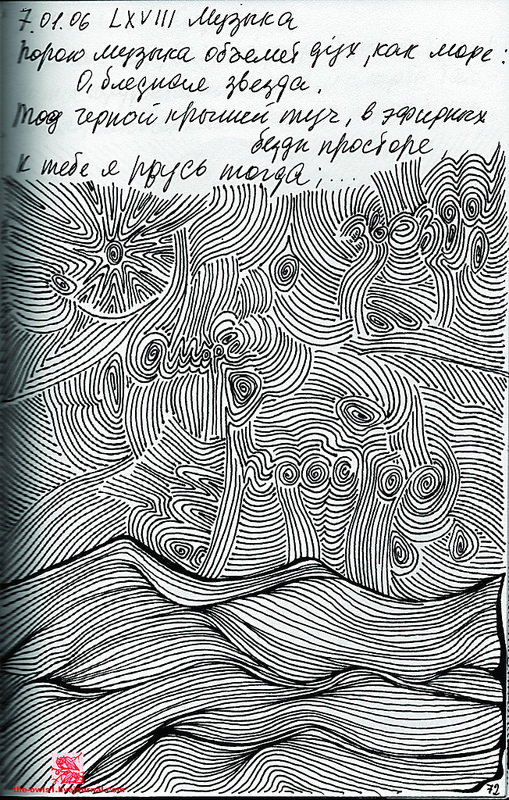 7.01.06 LXVIII Музыка
Порою музыка объемлет дух, как море:
О, бледная звезда,
Под черной крышей туч, в эфирных
бездн просторе,
К тебе я рвусь тогда;...
72